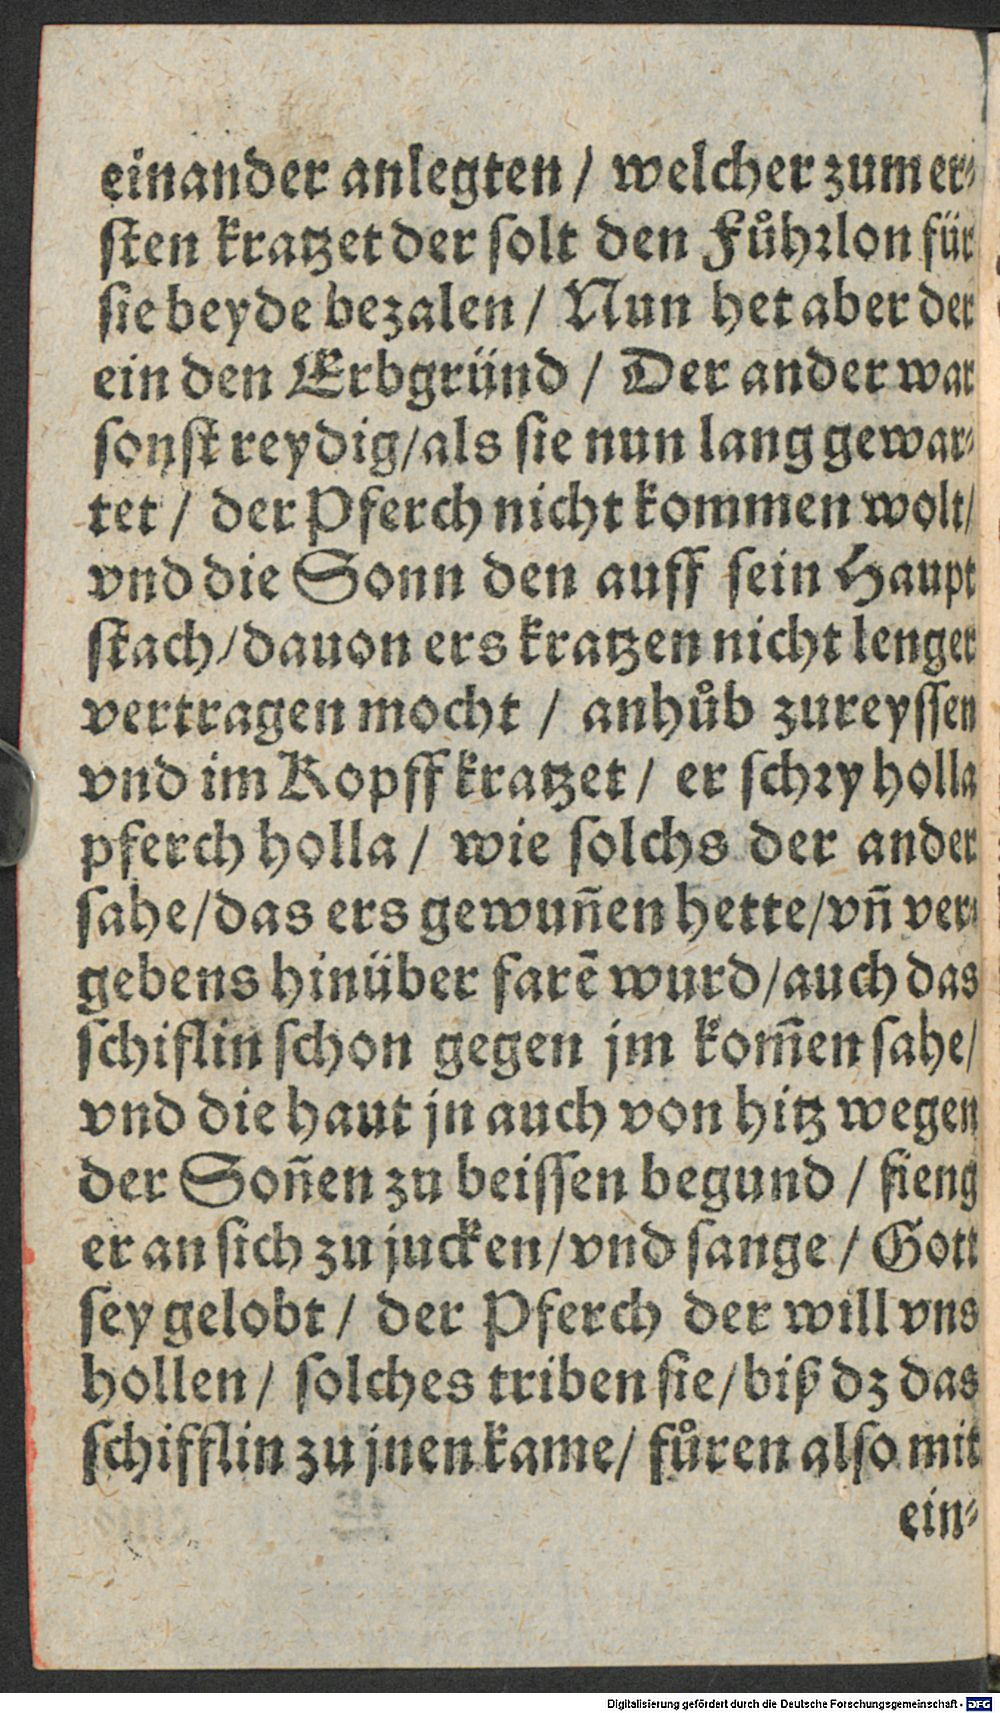 einander anlegten / welcher zum er⸗
ſten kratzet der ſolt den Fuͦhꝛlon für
ſie beyde bezalen / Nun het aber der
ein den Erbgründ / Der ander war
ſonſt reydig/als ſie nun lang gewar⸗
tet / der Pferch nicht kommen wolt/
vnd die Sonn den auff ſein Haupt
ſtach/dauon ers kratzen nicht lenger
vertragen mocht / anhuͦb zureyſſen
vnd im Kopff kratzet / er ſchꝛy holla
pferch holla / wie ſolchs der ander
ſahe/das ers gewuñen hette/vñ ver⸗
gebens hinüber farẽ wurd/auch das
ſchiflin ſchon gegen jm kom̃en ſahe/
vnd die haut jn auch von hitz wegen
der Soñen zu beiſſen begund / fieng
er an ſich zu jucken/vnd ſange / Gott
ſey gelobt / der Pferch der will vns
hollen / ſolches triben ſie/biß dz das
ſchifflin zu jnen kame/ fuͦren alſo mit
ein⸗
Digitalisierung gefördert durch die Deutsche Forschungsgemeinschaft - DFG